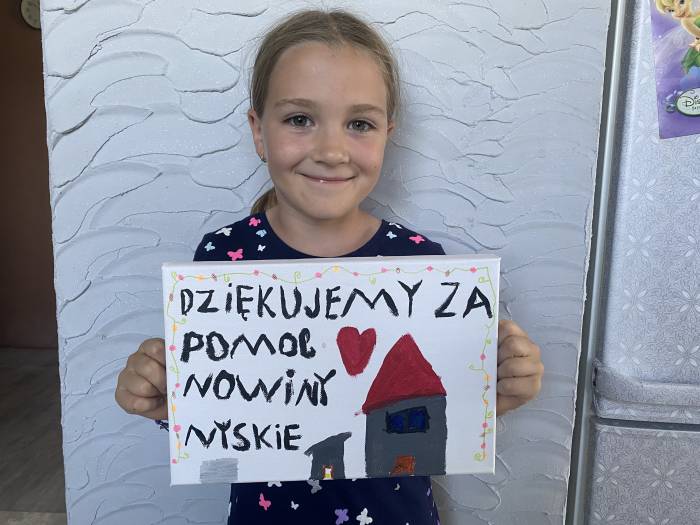 DZIĘKUJEMY ZA
POMOC
NOWINY
NYSKIE